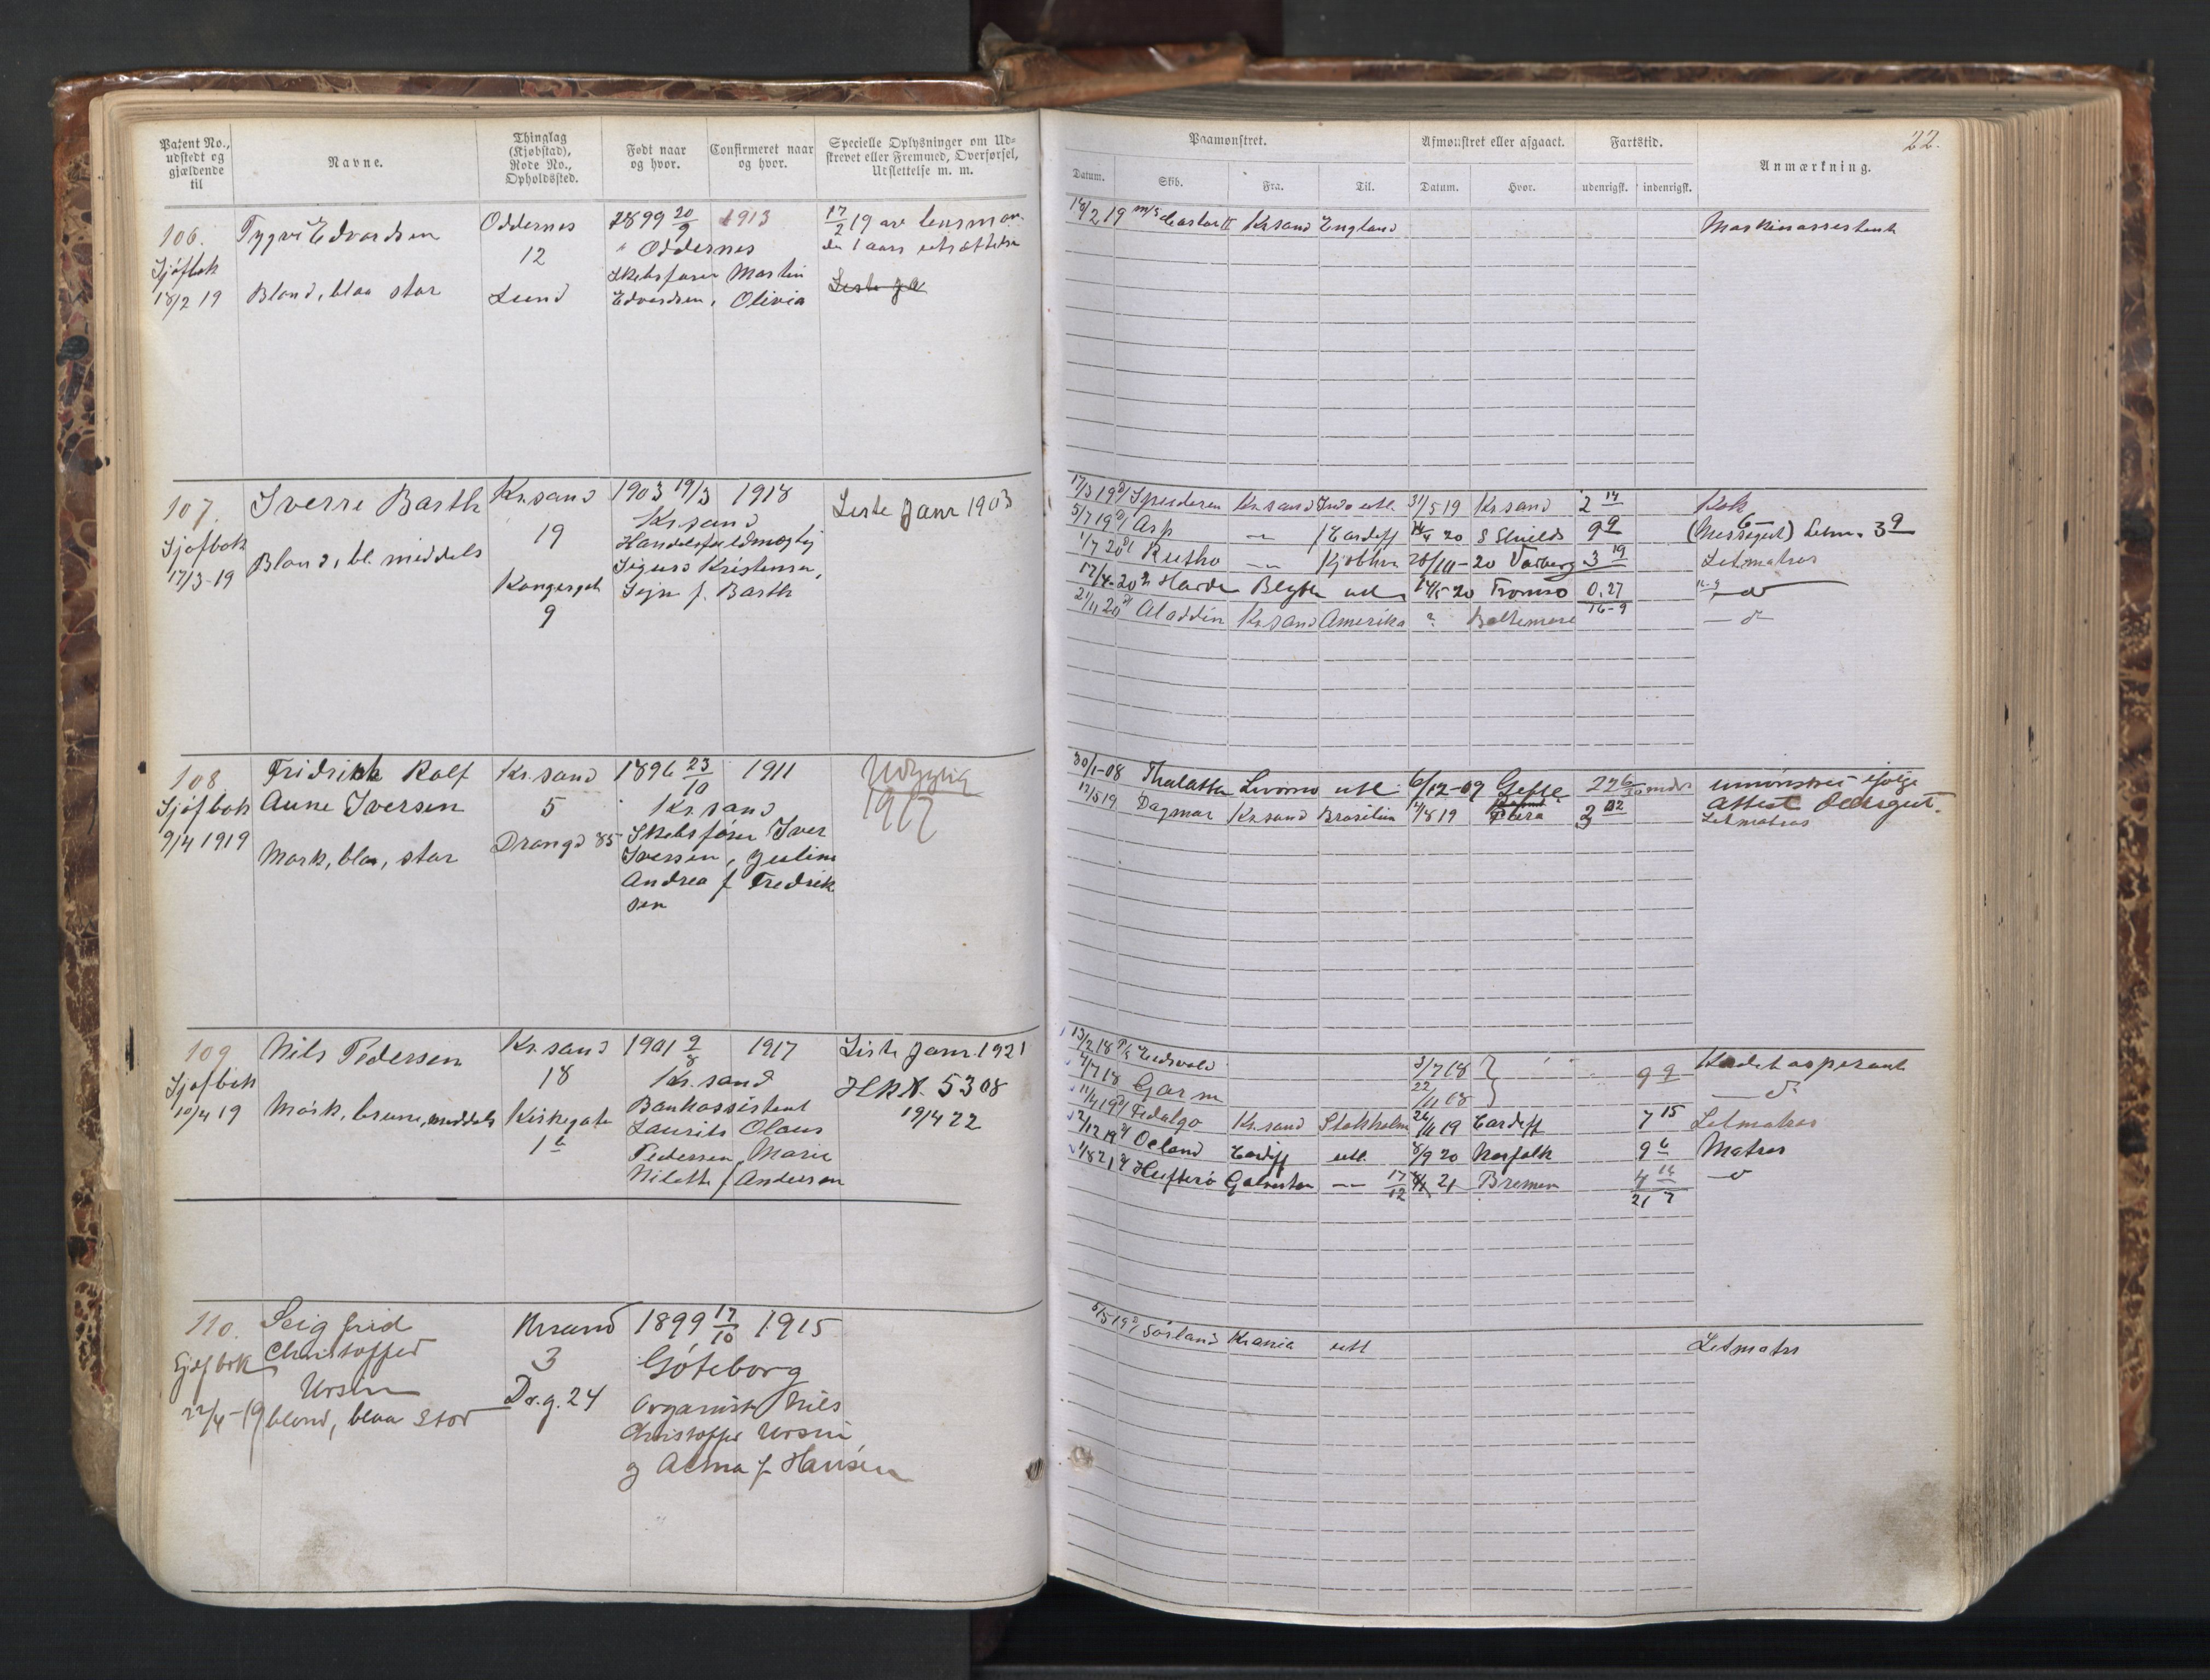 22.
Patent No., udstedt og gjældende til
Navne.
Thinglag (Kjøbstad), Rode No., Opholdssted.
Født naar og hvor.
Confirmeret naar og hvor.
Specielle Oplysninger om Udskrevet eller Fremmed, Overførsel, Udslettelse m. m.
Paamønstret.
Datum. Skib. Fra. Til.
Afmønstret eller afgaaet.
Datum. Hvor.
Fartstid.
udenrigsk. indenrigsk.
Anmærkning.
106. Sjøfbok 18/2 19
Tygvi Edvardsen
Blond, blaa stor
Oddernes
12
Lund
1899 20/9 1913
Oddernes
Skibsfører Martin
Edvardsen, Olivia
17/2 19 av
1 aars utsættelse
Liste ja
18/2 19 m/s Castor II Kr.sand England Maskinassistent
107. Sjøfbok 17/3-19
Sverre Barth
Blond, bl. middels
Kr.sand
19
Kongensgt
9
1903 19/3 1918
Kr.sand
Handelsfuldmægtig
Sigurd Kristensen,
Signe f. Barth
Liste Janr 1903
17/3 19 Speideren Kr.sand Indo utl. 31/5 19 Kr.sand 2 14 Kok
5/7 19 Asp Cardiff 20 S Shields 9 9 (Messegut) Letm. 3 9
1/7 20 Rutho Kjøbhvn 26/10-20 Varberg 3 19 Letmatros
17/4-20 Harde Blyth utl 14/5 20 Tromsø 0,27
16-9
21/11 20 Aladdin Kr.sand Amerika ? Baltimore
108 Sjøfbok 9/4 1919
Fridrikk Ralf
Aune Iversen
Mørk, blaa, stor
Kr.sand
5
Drongs 85
1896 23/10 1911
Kr.sand
Skibsfører Iver
Iversen, Juline
Andrea f. Fredrik
sen
Udygtig
1917
30/1-08 Thalatta Livorno utl. 6/12-09 Gefle 22 6/30 mdr umønstret ifølge
Attest Dæksgut.
12/5 19 Dagmar Kr.sand Brasilien 12/8 19 Para 3 02 Letmatros
109 Sjøfbok 10/4 19
Nils Pedersen
Mørk, brune, middels
Kr.sand
18
Kirkegate
1 b
1901 9/8 1917
Kr.sand
Bankassistent
Laurits Olaus
Pedersen, Marie
Nilette f Andersen
Liste Janr. 1921
HKX. 5308
19/4 22
13/2 18 P/s Eidsvold 3/7 18 9 9 Kadetaspirant
4/7 18 Garm 22/11 08
11/4 19 Fidalgo Kr.sand Stokholm 26/11 19 Cardiff 7 15 Letmatros
2/12 19 Oeland Cardiff utl. 8/9 20 Norfolk 9 6 Matros
1/8 21 Hufterø Galveston 17/12 21 Bremen 4 16
21 7
110. Sjøfbok 22/4-19
Seigfried
Christoffer
Ursin
blond, blaa stor
Krsand
3
Dr.g. 24
1899 17/10 1915
Göteborg
Organist Nils
Christoffer Ursin
og Alma f. Hansen
5/5 19 Sørland Krania utl Letmatros